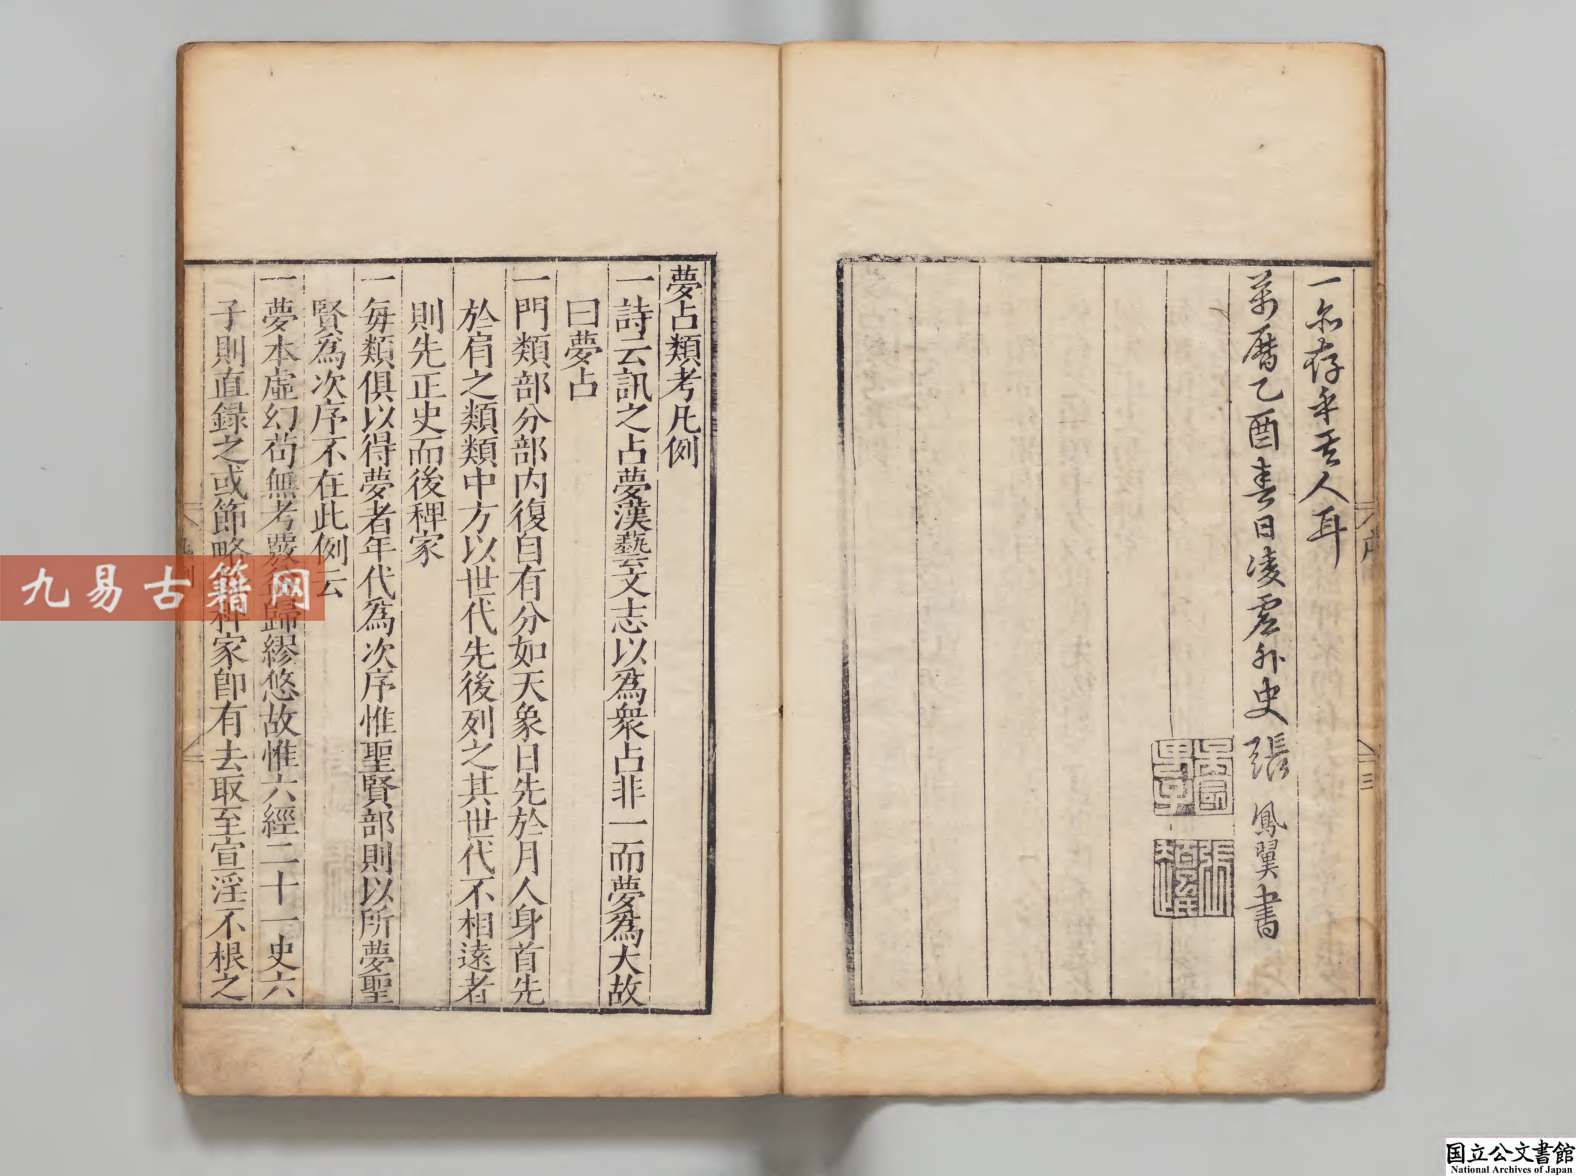 一亦存乎其人耳
萬曆乙酉春日凌虛外史張鳳翼書
夢占類考凡例
一詩云訊之占夢漢藝文志以爲衆占非一而夢爲大故
曰夢占
一門類部分部内復自有分如天象日先於月人身首先
於肩之類類中方以世代先後列之其世代不相遠者
則先正史而後稗家
一每類俱以得夢者年代爲次序惟聖賢部則以所夢聖
賢爲次序不在此例云
一夢本虛幻苟無考覈歸繆悠故惟六經二十一史六
子則直録之或節略稗家卽有去取至宣淫不根之
九易古籍网
国立公文書館
National Archives of Japan